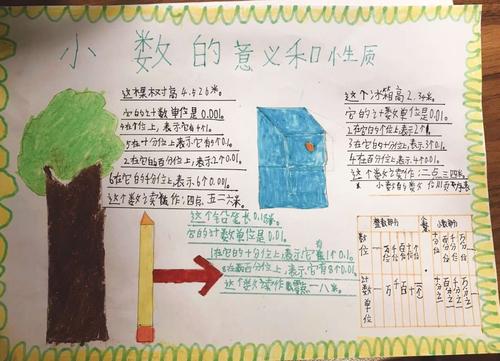 小数的意义和小性质
这棵树高4.526米。
它的计数单位是0.001。
4在个位上,表示它有4个1。
5在十分位上,表示它有5个0.1。
2在它的百分位上,表示2个0.01。
6在它的千分位上,表示6个0.001。
这个数字读作:四点五二六米。
这个冰箱高2.34米。
它的计数单位是0.01。
2在它的个位上,表示2个1
3在它的十分位上,表示3个0.1。
4在百分位上,表示4个0.01。
这个数字读作:二点三四米。
小数的数位
这个铅笔长0.18米。
它的计数单位是0.01。
1在它的十分位上,表示它有1个0.1。
8在百分位上,表示它有8个0.01。
这个数字读作 一八米。
整数部分 小数部分
数位
计数单位